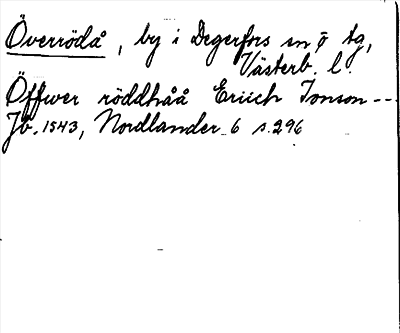 Överrödå, by i Degerfors sn ö tg,
Västerb. l.
Öffwer röddhåå Eriich Jonson ---
Jb. 1543, Nordlander 6 s. 296